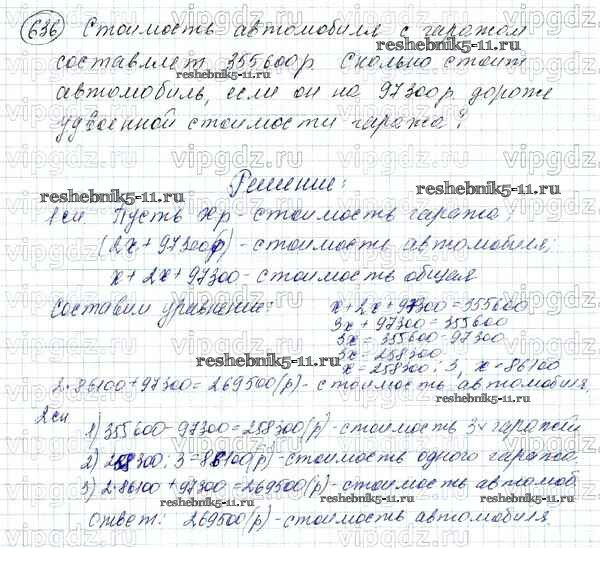 636 Стоимость автомобиля с гаражом
составляет 355600р Сколько стоит
автомобиль, если он на 97300р. дороже
удвоенной стоимости гаража?
Решение:
1сп Пусть xр - стоимость гаража;
(2x + 97300р) - стоимость автомобиля;
x + 2x + 97300 - стоимость общая
Составим уравнение:
x + 2x + 97300 = 355600
3x + 97300 = 355600
3x = 355600 - 97300
3x = 258300
x = 258300 : 3, x = 86100
2·86100 + 97300 = 269500(р) - стоимость автомобиля.
2сп
1) 355600 - 97300 = 258300(р) - стоимость 3х гаражей
2) 258300 : 3 = 86100(р) - стоимость одного гаража.
3) 2·86100 + 97300 = 269500(р) - стоимость автомоб
Ответ: 269500(р) - стоимость автомобиля.
vipgdz.ru
reshebnik5-11.ru